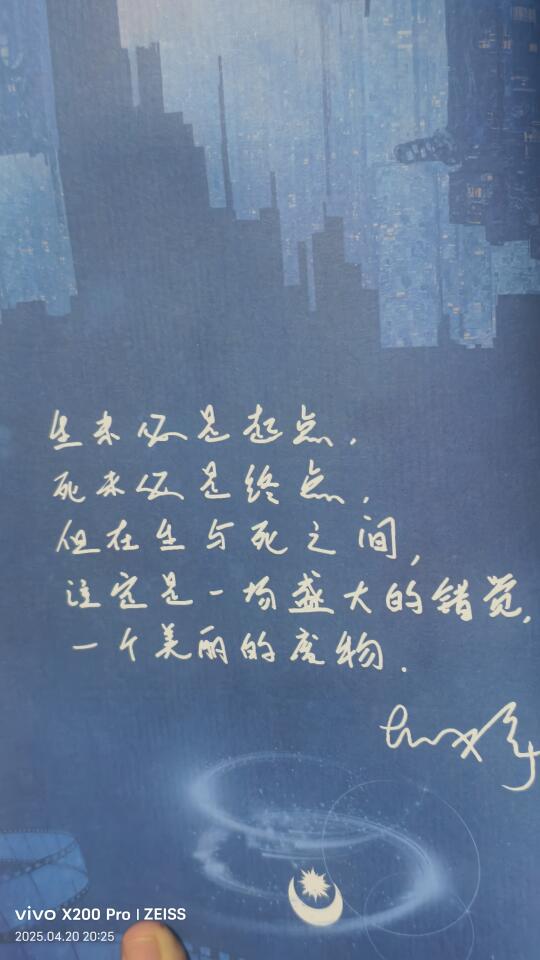 生未必是起点，
死未必是终点，
但在生与死之间，
注定是一场盛大的错觉，
一个美丽的废物.
vivo X200 Pro | ZEISS
2025.04.20 20:25